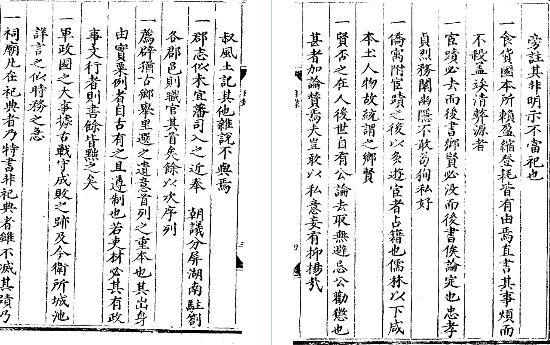 叔風土記其他雜說不與焉
一郡志似本宜藩司入之近奉 朝議分屏湖南駐劄
各郡邑則職官其首矣餘以次序列
一薦辟猶古鄉舉里選之遺意首列之重本也其出身
由實粟例者自古有之且遵制也若吏材必其有政
事文行者則書餘皆黜之矣
一軍政國之大事據古戰守成敗之跡及今衛所城池
詳言之似時務之急
一祠廟凡在祀典者乃特書非祀典者雖不滅其蹟乃
旁註其非明示不當祀也
一食貨國本所賴盈縮登耗皆有由焉直書其事煩而
不殺孟族清弊源者
一宦蹟必去而後書鄉賢必沒而後書俟論定也忠孝
貞烈務闡幽隱不敢苟狥私好
一僑寓附宦蹟之後以多遊宦者占籍也儒林以下咸
本土人物故統謂之鄉賢
一賢否之在人後世自有公論去取無避忌公勸懲也
甚者加論贊焉夫豈敢以私意妄有抑揚哉